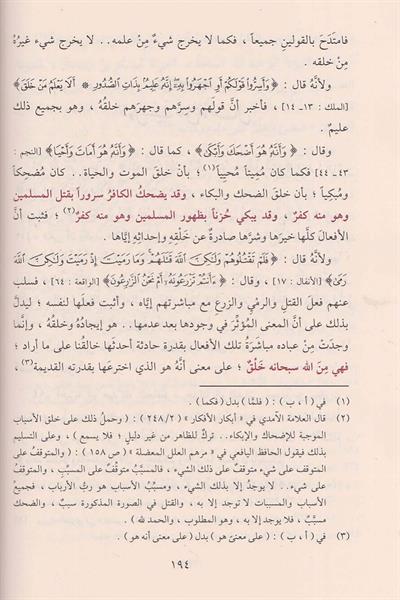 فامتَدَحَ بالقولينِ جميعاً ، فكما لا يخرج شيءٌ مِنْ علمه . . لا يخرج شيء غيرُهُ
مِنْ خلقه .
ولأنَّهُ قال : ﴿ وَأَسِرُّوا قَوْلَكُمْ أَوِ اجْهَرُوا بِهِ إِنَّهُ عَلِيمٌ بِذَاتِ الصُّدُورِ * أَلَا يَعْلَمُ مَنْ خَلَقَ ﴾
[الملك : ١٣ـ١٤] ، فأخبر أنَّ قولَهم وسِرَّهم وجهرَهم خلقُهُ ، وهو بجميع ذلك
عليمٌ .
وقال : ﴿ وَأَنَّهُ هُوَ أَضْحَكَ وَأَبْكَى ﴾ ، كما قال : ﴿ وَأَنَّهُ هُوَ أَمَاتَ وَأَحْيَا ﴾ [النجم :
٤٣ـ٤٤] فكما كان مُمِيتاً مُحيياً(١) ؛ بأنْ خلقَ الموت والحياة . . كان مُضحِكاً
ومُبكِياً ؛ بأن خلق الضحك والبكاء ، وقد يضحكُ الكافرُ سروراً بقتل المسلمين
وهو منه كفرٌ ، وقد يبكي حُزناً بظهور المسلمين وهو منه كفرٌ(٢) ؛ فثبت أنَّ
الأفعالَ كلَّها خيرَها وشرَّها صادرةٌ عن خَلْقِهِ وإحداثِهِ إيَّاها .
ولأنَّهُ قال : ﴿ فَلَمْ تَقْتُلُوهُمْ وَلَكِنَّ اللَّهَ قَتَلَهُمْ وَمَا رَمَيْتَ إِذْ رَمَيْتَ وَلَكِنَّ اللَّهَ
رَمَى ﴾ [الأنفال : ١٧] ، وقال : ﴿ ءَأَنْتُمْ تَزْرَعُونَهُ أَمْ نَحْنُ الزَّارِعُونَ ﴾ [الواقعة : ٦٤] ، فسلب
عنهم فعلَ القتلِ والرميِ والزرعِ مع مباشرتهم إيَّاه ، وأثبت فعلَها لنفسه ؛ ليدلَّ
بذلك على أنَّ المعنى المُؤثِّرَ في وجودها بعد عدمها . . هو إيجادُهُ وخلقُهُ ، وإنما
وجدَتْ مِنْ عباده مباشرَةُ تلك الأفعال بقدرة حادثة أحدثَها خالقُنا على ما أراد ؛
فهي مِنَ الله سبحانه خَلْقٌ ؛ على معنى أنَّهُ هو الذي اخترعَها بقدرته القديمة(٣) ،
(١) في ( أ ، ب ) : ( فلمَّا ) بدل ( فكما ) .
(٢) قال العلامة الآمدي في « أبكار الأفكار » ( ٢٤٨/٢ ) : ( وحملُ ذلك على خلق الأسباب
الموجبة للإضحاك والإبكاء . . تركٌ للظاهر من غير دليل ؛ فلا يسمع ) ، وعلى التسليم
بذلك فيقول الحافظ اليافعي في « مرهم العلل المعضلة » ( ص ١٥٨ ) : ( والمتوقف على
المتوقف على شيء متوقِّفٌ على ذلك الشيء ، فالمسبَّبُ متوقِّفٌ على المسبِّب ، والمتوقِّف
على شيء . . لا يوجدُ إلا بذلك الشيء ، ومسبِّبُ الأسباب هو ربُّ الأرباب ، فجميعُ
الأسباب والمسببات لا توجد إلا به ، والقتل في الصورة المذكورة سببٌ ، والضحك
مسبَّبٌ ، فلا يوجد إلا به ، وهو المطلوب ، والحمد لله ) .
(٣) في ( أ ، ب ) : ( على معنىً هو ) بدل ( على معنى أنه هو ) .
١٩٤